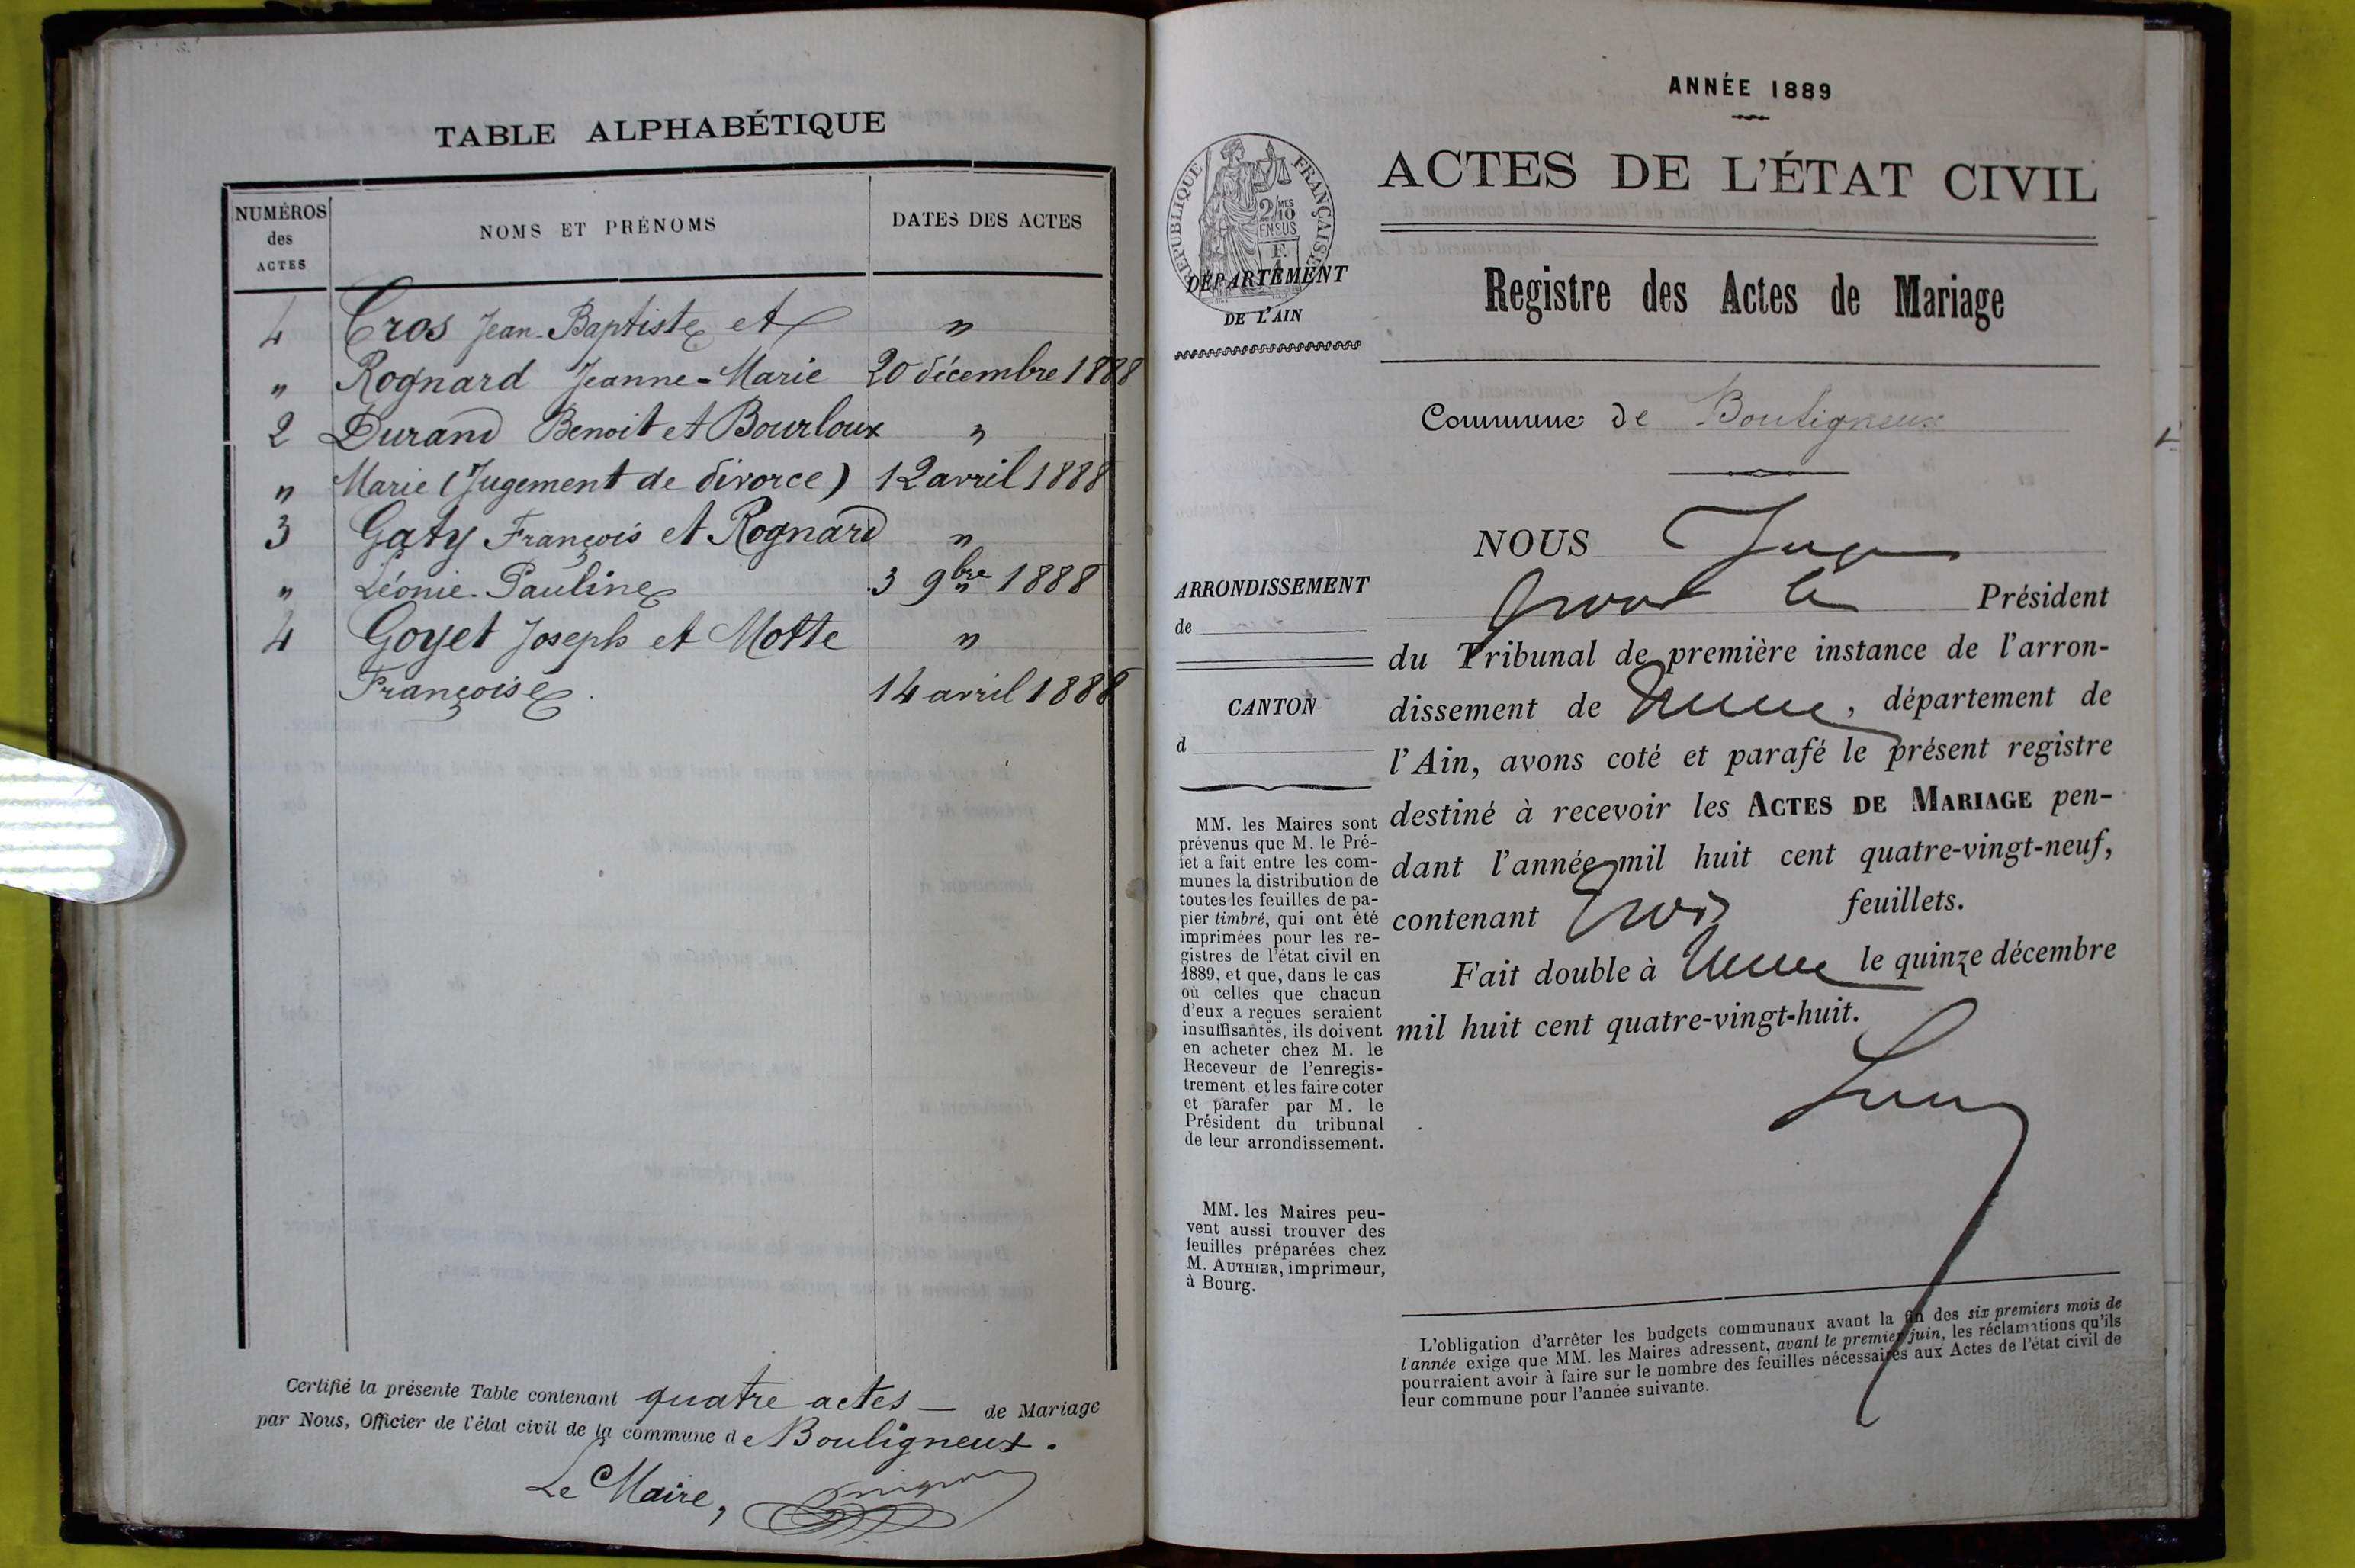 TABLE ALPHABÉTIQUE
NUMÉROS des ACTES
NOMS ET PRÉNOMS
DATES DES ACTES
4 Cros Jean-Baptiste et "
" Rognard Jeanne-Marie 20 décembre 1888
2 Durand Benoit et Bourloux "
" Marie (Jugement de divorce) 12 avril 1888
3 Gaty François et Rognard "
" Léonie-Pauline 3 9bre 1888
4 Goyet Joseph et Motte "
Françoise. 14 avril 1888
Certifié la présente Table contenant quatre actes — de Mariage
par Nous, Officier de l'état civil de la commune de Bouligneux.
Le Maire,
ANNÉE 1889
RÉPUBLIQUE FRANÇAISE
2/10 MES
EN SUS
DÉPARTEMENT
DE L'AIN
ACTES DE L'ÉTAT CIVIL
Registre des Actes de Mariage
Commune de Bouligneux
ARRONDISSEMENT
de
CANTON
d
MM. les Maires sont
prévenus que M. le Pré-
fet a fait entre les com-
munes la distribution de
toutes les feuilles de pa-
pier timbré, qui ont été
imprimées pour les re-
gistres de l'état civil en
1889, et que, dans le cas
où celles que chacun
d'eux a reçues seraient
insuffisantes, ils doivent
en acheter chez M. le
Receveur de l'enregis-
trement et les faire coter
et parafer par M. le
Président du tribunal
de leur arrondissement.
MM. les Maires peu-
vent aussi trouver des
feuilles préparées chez
M. AUTHIER, imprimeur,
à Bourg.
NOUS Juge
pour le Président
du Tribunal de première instance de l'arron-
dissement de , département de
l'Ain, avons coté et parafé le présent registre
destiné à recevoir les ACTES DE MARIAGE pen-
dant l'année mil huit cent quatre-vingt-neuf,
contenant trois feuillets.
Fait double à le quinze décembre
mil huit cent quatre-vingt-huit.
L'obligation d'arrêter les budgets communaux avant la fin des six premiers mois de
l'année exige que MM. les Maires adressent, avant le premier juin, les réclamations qu'ils
pourraient avoir à faire sur le nombre des feuilles nécessaires aux Actes de l'état civil de
leur commune pour l'année suivante.